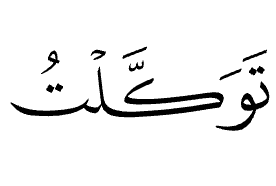 تَوَكَّلْتُ